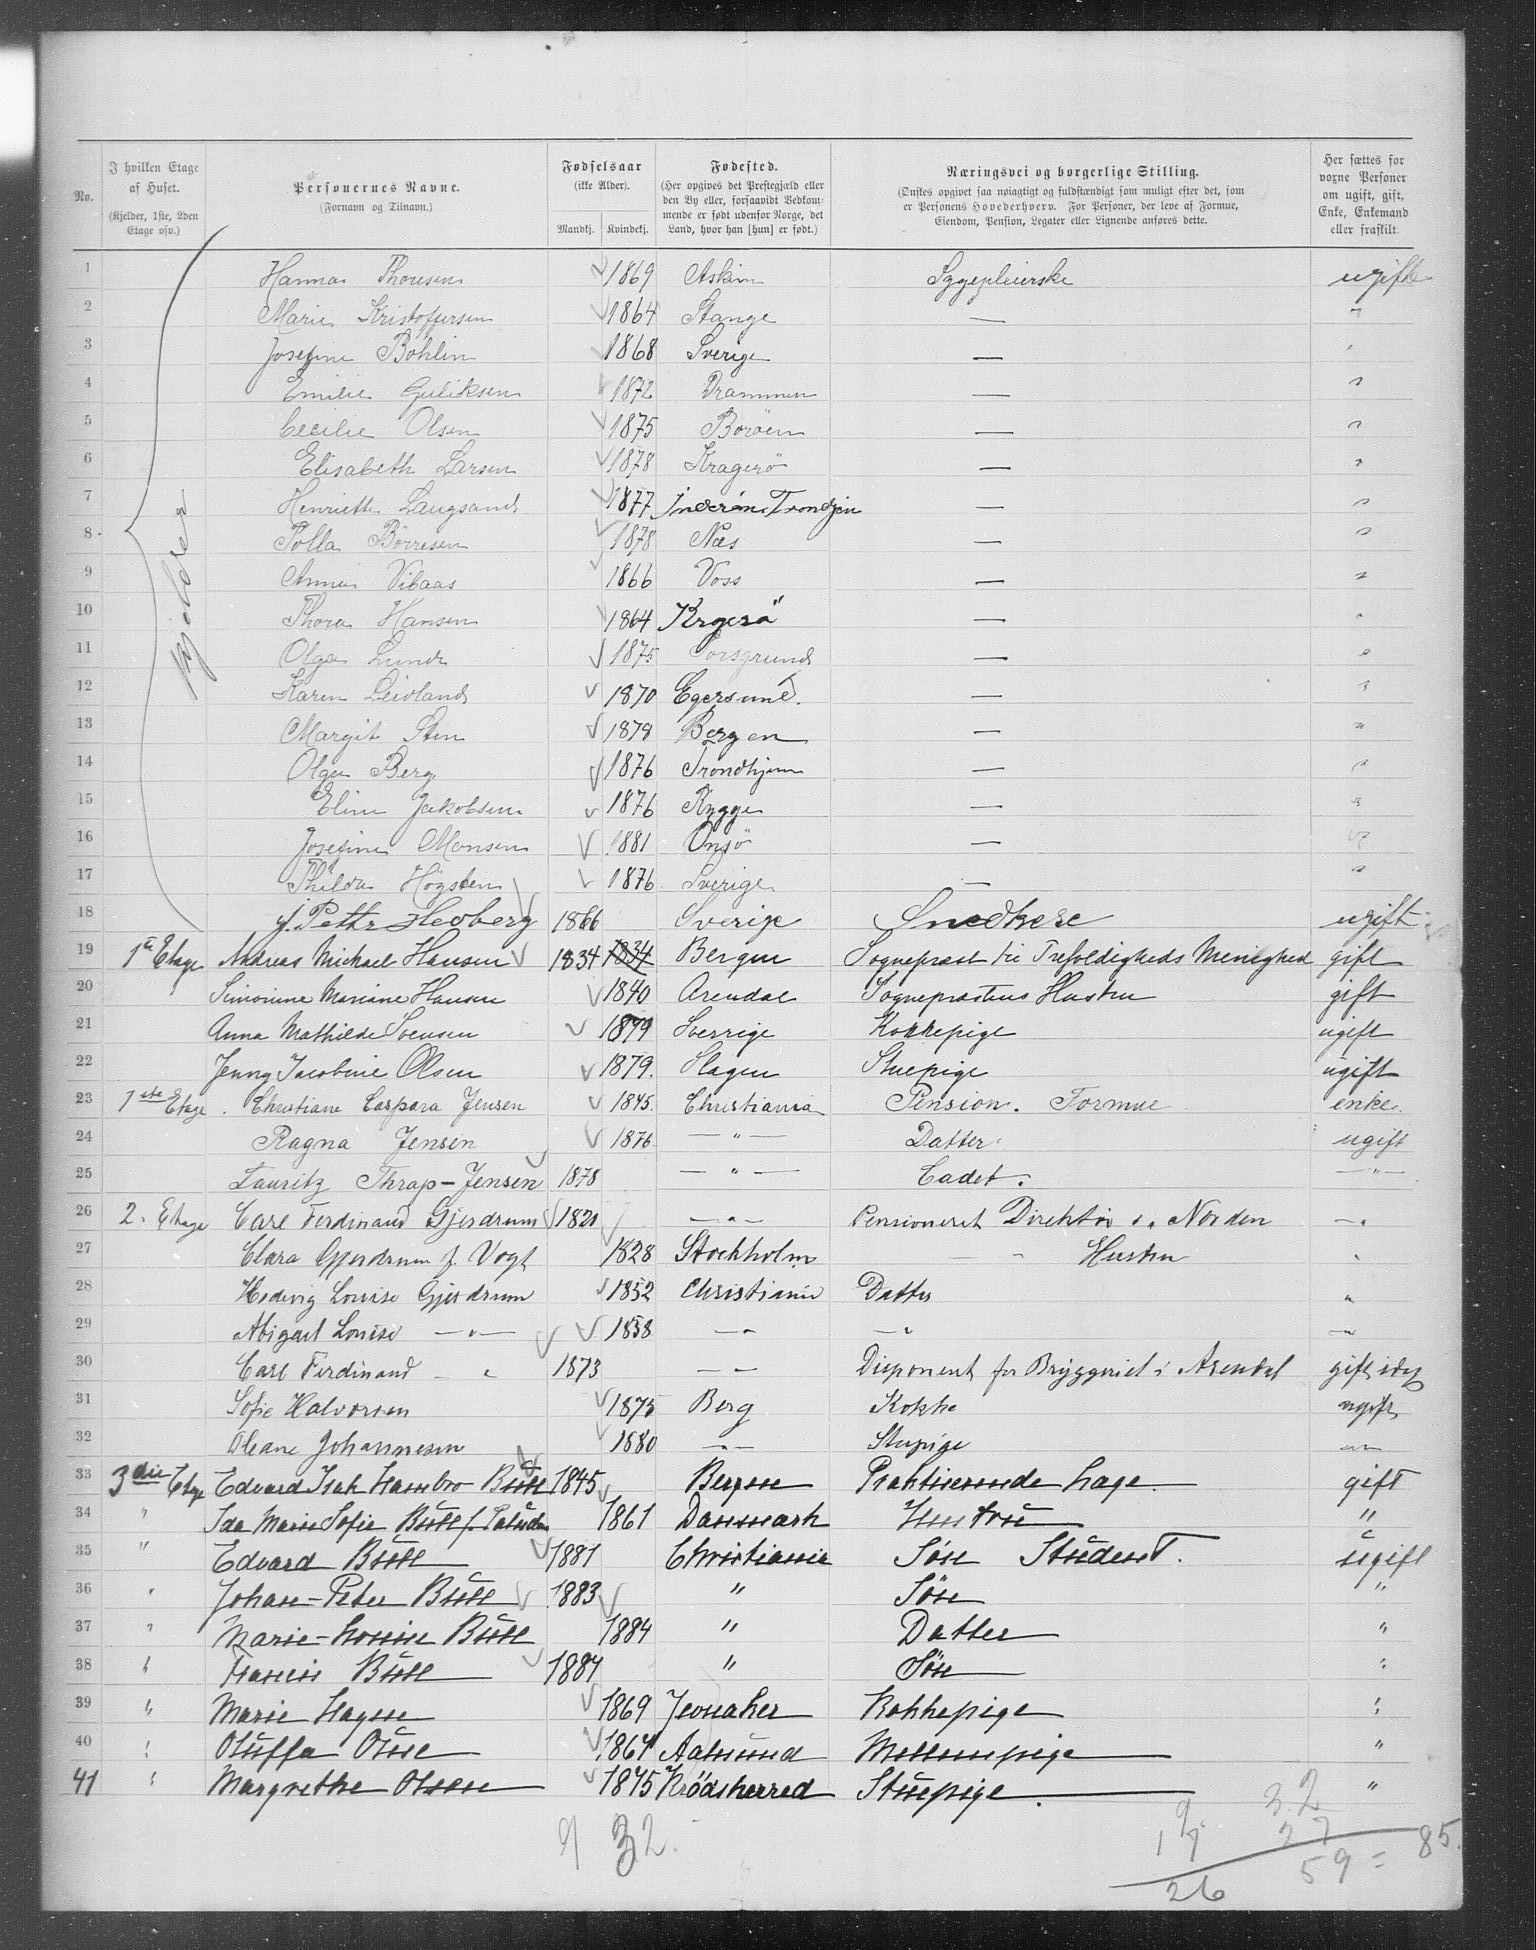 No.
I hvilken Etage af Huset. (Kjelder, 1ste, 2den Etage osv.)
Personernes Navne. (Fornavn og Tilnavn.)
Fødselsaar (ikke Alder). Mandkj. Kvindekj.
Fødested. (Her opgives det Prestegjæld eller den By eller, forsaavidt Bedkommende er født udenfor Norge, det Land, hvor han [hun] er født.)
Næringsvei og borgerlige Stilling. (Ønskes opgivet saa nøiagtigt og fuldstændigt som muligt efter det, som er Personens Hovederhverv. For Personer, der leve af Formue, Eiendom, Pension, Legater eller Lignende anføres dette.)
Her sættes for voxne Personer om ugift, gift, Enke, Enkemand eller fraskilt
Kjelder
1 Hanna Thoresen 1869 Askim Sygepleierske ugift
2 Marie Kristoffersen 1864 Stange — "
3 Josefine Bohlin 1868 Sverige — "
4 Emilie Guliksen 1872 Drammen — "
5 Cecilie Olsen 1875 Boröen — "
6 Elisabeth Larsen 1878 Kragerö — "
7 Henriette Langsand 1877 Inderöen Trondhjem — "
8 Polla Börresen 1878 Næs — "
9 Anna Vibaas 1866 Voss — "
10 Thora Hansen 1864 Krgerö — "
11 Olga Lund 1875 Porsgrund — "
12 Karen Leidland 1870 Egersund. — "
13 Margit Sten 1878 Bergen — "
14 Olga Berg 1876 Trondhjem — "
15 Eline Jakobsen 1876 Rygge — "
16 Josefine Monsen 1881 Onsö — "
17 Thilda Högsten 1876 Sverige — "
18 J. Petter Hedberg 1866 Sverige Snedkere ugift
19 1ste Etage Andreas Michael Hansen 1834 1834 Bergen Sognepræst til Trefoldigheds Menighed gift
20 Simonine Mariane Hansen 1840 Arendal Sognepræstens Hustru gift
21 Anna Mathilde Svensen 1879 Sverrige Kokkepige ugift
22 Jenny Jacobine Olsen 1879. Slagen Stuepige ugift
23 1ste Etage. Christiane Caspara Jensen 1845. Christiania Pension. Formue enke.
24 Ragna Jensen 1876. — " — Datter. ugift
25 Lauritz Thrap-Jensen 1878 — " — Cadet. — " —
26 2. Etage Carl Ferdinand Gjerdrum 1821 — " — Pensioneret Direktør i. Norden — "
27 Clara Gjerdrum f. Vogt 1828 Stockholm — " Hustru "
28 Hedvig Louise Gjerdrum 1852 Christiania Datter "
29 Abigael Louise — " — 1858 — " — " "
30 Carl Ferdinand — " 1873 — " — Disponent for Bryggeriet i Arendal gift
31 Sofie Halvorsen 1875 Berg Kokke ugift
32 Oleane Johannesen 1880 — " — Stupige "
33 3die Etage Edvard Isak Hambro Bull 1845 Bergen Praktiserende Læge gift
34 " Ida Marie Sofie Bull f. Paludan 1861 Danmark Hustru "
35 " Edvard Bull 1881 Christiania Søn Student. ugift
36 " Johan-Peter Bull 1883 " Søn "
37 " Marie-Louise Bull 1884 " Datter "
38 " Francis Bull 1887 " Søn "
39 " Marie Hagen 1869 Jevnaker Kokkepige "
40 " Oluffa Olsen 1867 Aalesund Mellempige "
41 " Margrethe Olsen 1875 Krödsherred Stuepige. "
9 32.
9 32
17 27
26 59 = 85.